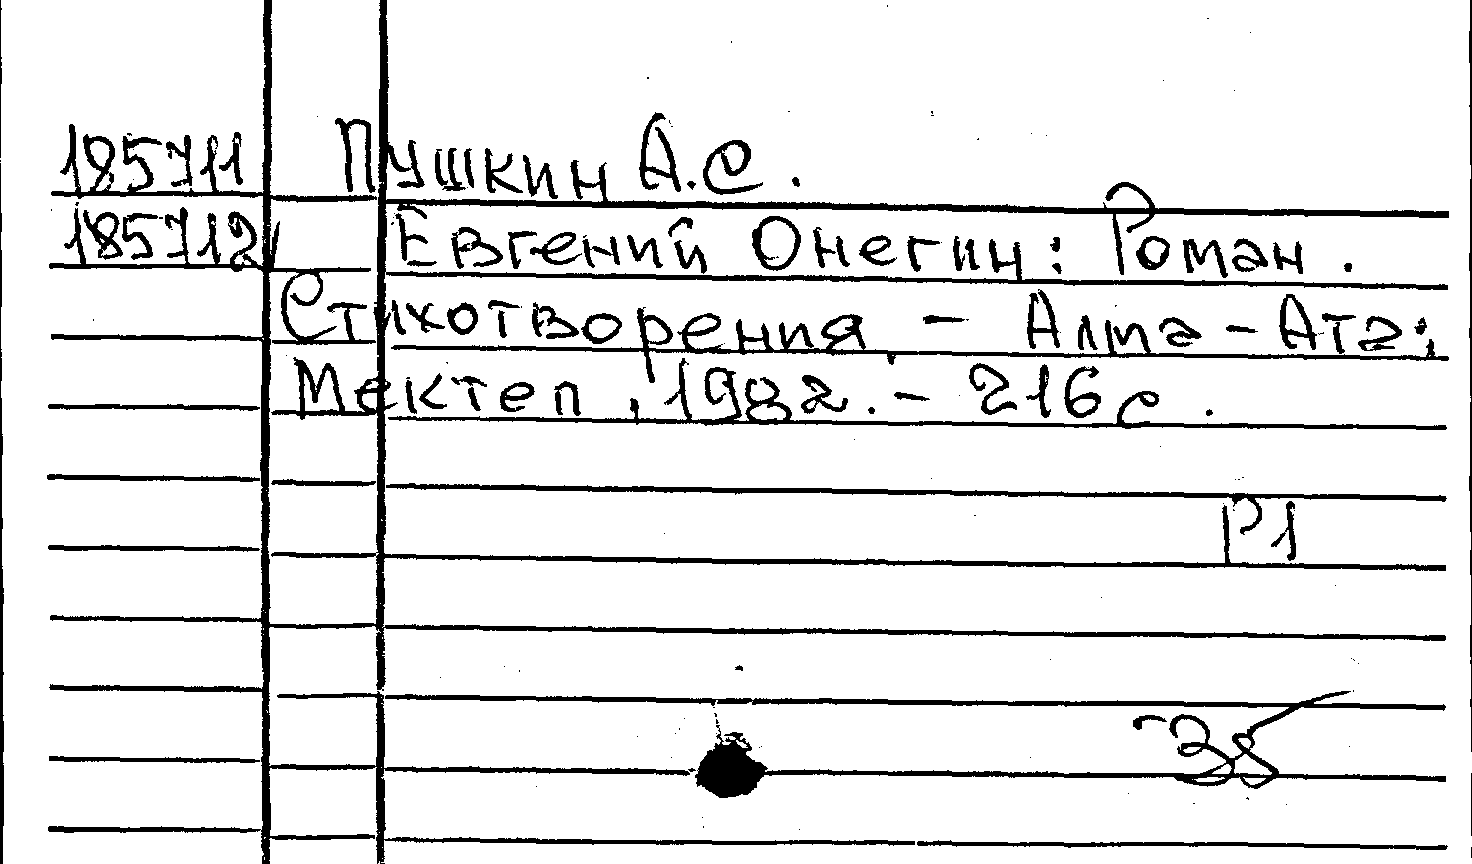 185711 Пушкин А.С.
185712 Евгений Онегин: Роман.
Стихотворения. - Алма-Ата:
Мектеп, 1982. - 216с.
Р1